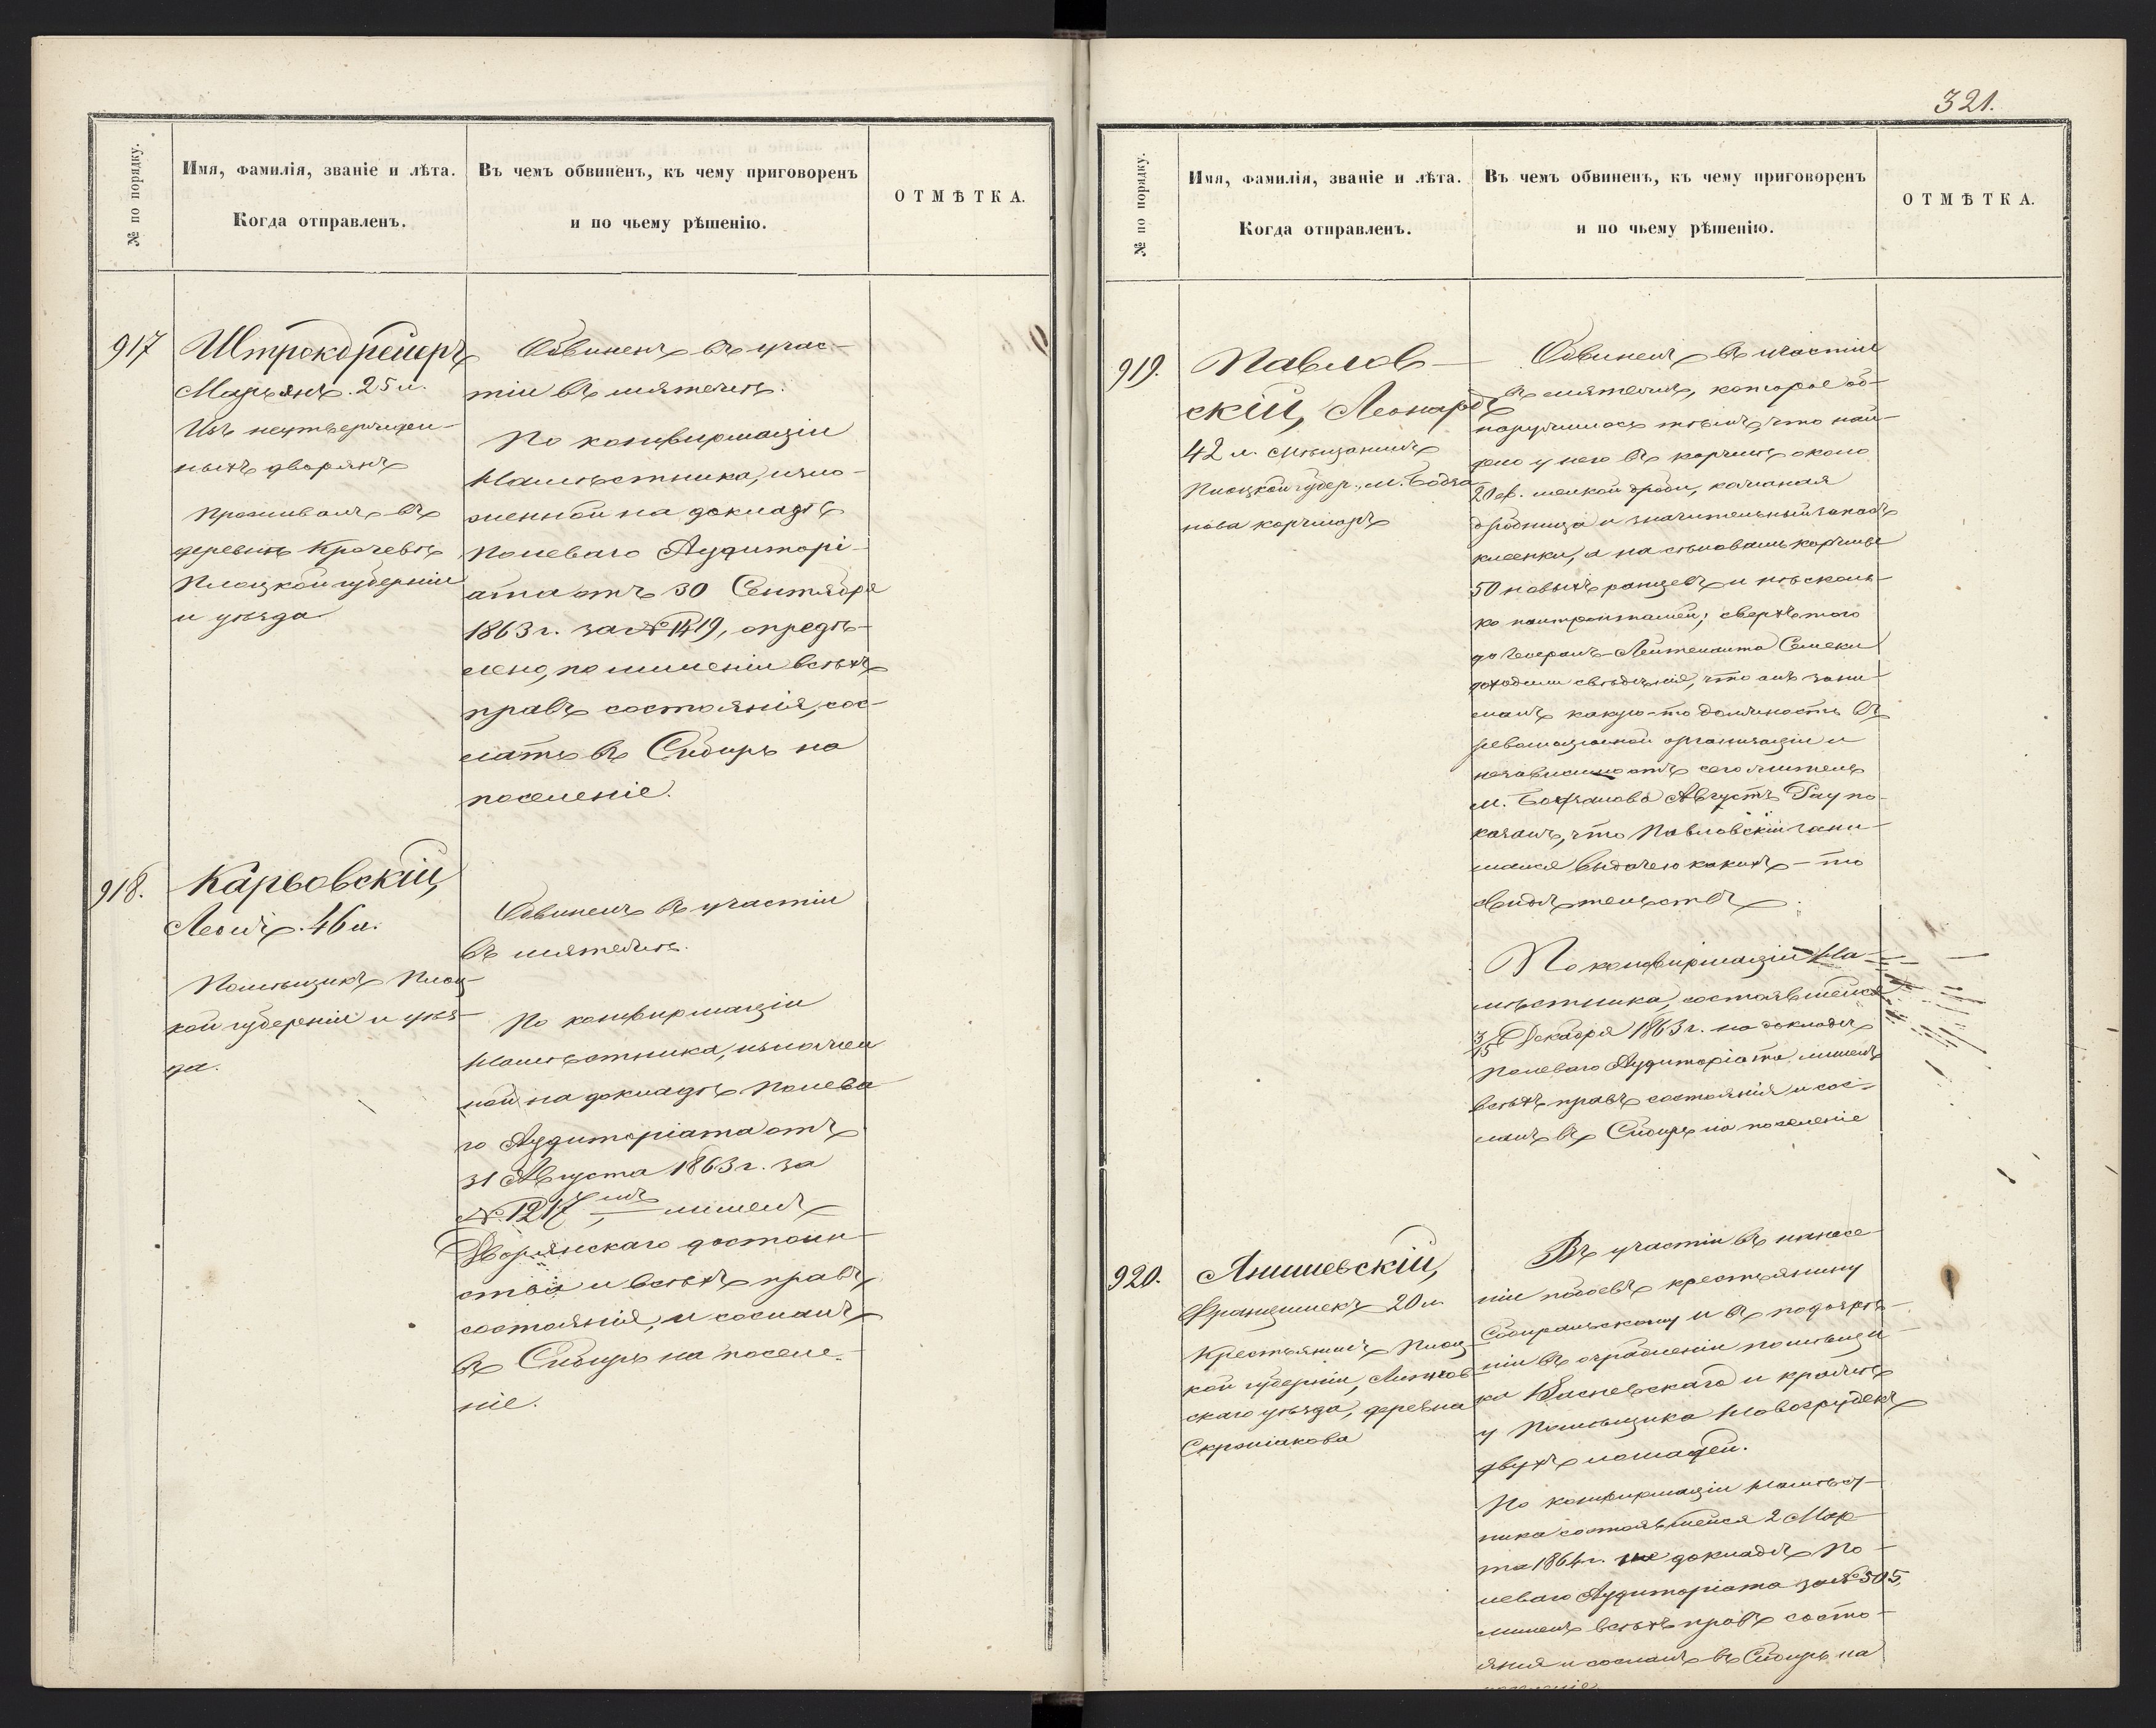 № по порядку.
Имя, фамилія, званіе и лѣта.
Когда отправленъ.
Въ чемъ обвиненъ, къ чему приговоренъ
и по чьему рѣшенію.
ОТМѢТКА.
917
Штрокдрейеръ
Марьянъ. 25 л.
Изъ неутвержден-
ныхъ дворянъ
проживалъ въ
деревнѣ Крачевѣ
Плоцкой губерніи
и уѣзда
Обвиненъ въ учас-
тіи въ мятежѣ.
По конфирмаціи
Намѣстника, изло-
женной на докладѣ
Полеваго Аудиторі-
ата отъ 30 Сентября
1863 г. за № 1419, опредѣ-
лено, по лишеніи всѣхъ
правъ состоянія, сос-
лать въ Сибирь на
поселеніе.
918.
Карьовскій,
Леонъ. 46 л.
Помѣщикъ Плоц-
кой губерніи и уѣз-
да.
Обвиненъ въ участіи
въ мятежѣ.
По конфирмаціи
Намѣстника, изложен
ной на докладѣ Полева
го Аудиторіата отъ
31 Августа 1863 г. за
№ 1217 мъ лишенъ
Дворянскаго достоин-
ства и всѣхъ правъ
состоянія, и сосланъ
въ Сибирь на поселе-
ніе.
321.
№ по порядку.
Имя, фамилія, званіе и лѣта.
Когда отправленъ.
Въ чемъ обвиненъ, къ чему приговоренъ
и по чьему рѣшенію.
ОТМѢТКА.
919.
Павлов-
скій, Леонардъ
42 л. мѣщанинъ
Плоцкой губер., м. Бодза
нова корчмарь
Обвиненъ въ участіи
въ мятежѣ, которое об-
наружилось тѣмъ, что най-
дено у него въ корчмѣ около
20 ф. мелкой дроби,
дробница и значительный запасъ
клеенки, а на сѣновалѣ корчмы
50 новыхъ ранцевъ и нѣсколь-
ко патронташей; сверхъ того
до Генералъ-Лейтенанта Семеки
доходили свѣдѣнія, что онъ зани-
малъ какую-то должность въ
революціонной организаціи и
независимо отъ сего житель
м. Бодзанова Августъ Рау по-
казалъ, что Павловскій зани-
мался выдачею какихъ-то
свидѣтельствъ.
По конфирмаціи На-
мѣстника, состоявшейся
3/15 Декабря 1863 г. на докладѣ
Полеваго Аудиторіата лишенъ
всѣхъ правъ состоянія и сос-
ланъ въ Сибирь на поселеніе
920.
Янишевскій,
Францишекъ 20 л.
Крестьянинъ Плоц-
кой губерніи, Липнов-
скаго уѣзда, деревни
Въ участіи въ нанесе-
ніи побоевъ крестьянину
и въ подозрѣ-
ніи въ ограбленіи помѣщи-
ка и кражѣ
у Помѣщика
двухъ лошадей.
По конфирмаціи Намѣст-
ника состоявшейся 2 Мар-
та 1864 г. на докладѣ По-
леваго Аудиторіата за № 505,
лишенъ всѣхъ правъ состо-
янія и сосланъ въ Сибирь на
поселеніе.